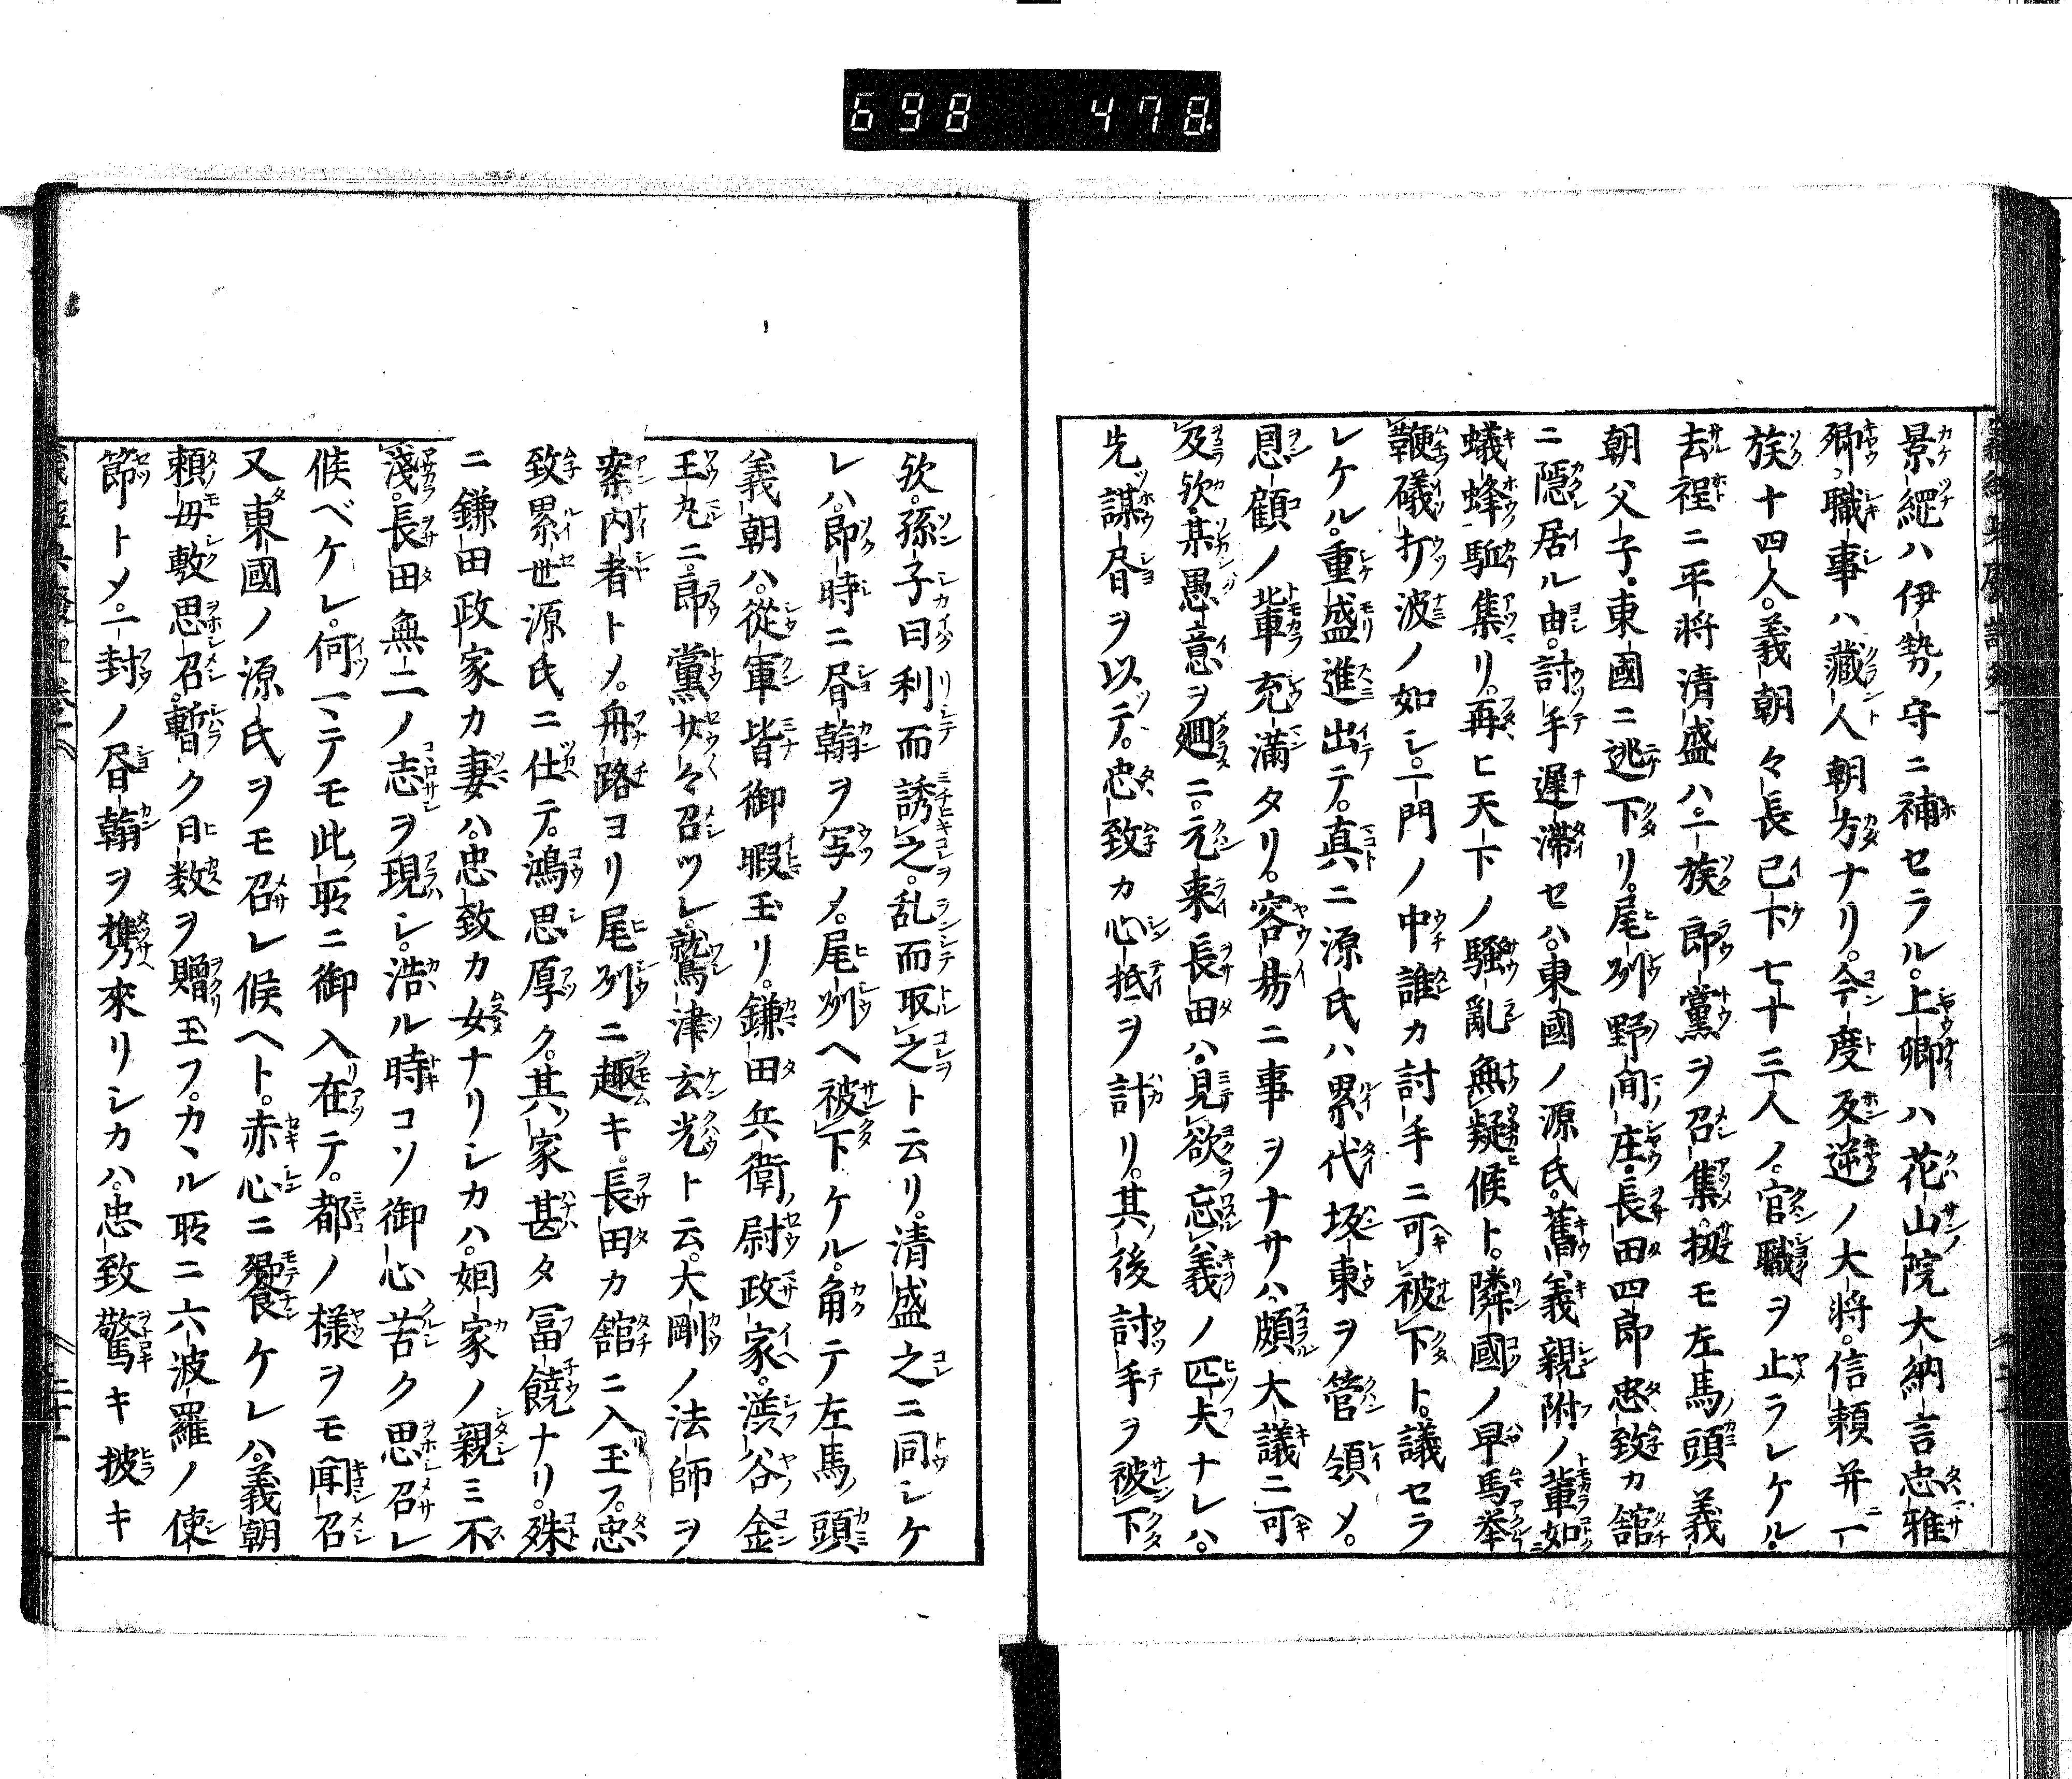 698 478
景綱ハ伊勢ノ守ニ補セラル。上卿ハ花山院大納言忠雅
卿職事ハ藏人朝方ナリ。今度反逆ノ大将。信頼并ニ一
族十四人。義朝々長已下七十三人ノ。官職ヲ止ラレケル。
去程ニ平将清盛ハ。一族郎黨ヲ召集。扨モ左馬ノ頭義
朝父子。東國ニ逃下リ。尾刕野間庄。長田四郎忠致カ舘
ニ隠居ル由。討手遅滞セハ。東國ノ源氏。舊義親附ノ輩如
蟻蜂駈集リ。再ヒ天下ノ騒亂無疑候ト。隣國ノ早馬挙
鞭礒打波ノ如シ。一門ノ中誰カ討手ニ可被下ト。議セラ
レケル。重盛進出テ。真ニ源氏ハ累代坂東ヲ管領メ。
恩顧ノ輩充満タリ。容昜ニ事ヲナサハ。頗大議ニ可
及欤。某愚意ヲ廻ニ。元来長田ハ。見欲忘義ノ匹夫ナレハ。
先謀昏ヲ以テ。忠致カ心抵ヲ計リ。其ノ後討手ヲ被下
欤。孫子曰利而誘之。乱而取之ト云リ。清盛之ニ同シケ
レハ。即時ニ昏翰ヲ写メ。尾刕ヘ被下ケル。角テ左馬ノ頭
義朝ハ。從軍皆御暇玉リ。鎌田兵衛ノ尉政家。渋谷金
王丸ニ。郎黨少々召ツレ。鷲津玄光ト云。大剛ノ法師ヲ
案内者トメ。舟路ヨリ尾刕ニ趣キ。長田カ舘ニ入玉フ。忠
致累世源氏ニ仕テ。鴻恩厚ク。其ノ家甚タ冨饒ナリ。殊
ニ鎌田政家カ妻ハ。忠致カ女ナリシカハ。姻家ノ親ミ不
淺。長田無二ノ志ヲ現シ。浩ル時コソ御心苦ク思召レ
候ベケレ。何ニテモ此ノ所ニ御入在テ。都ノ様ヲモ聞召
又東國ノ源氏ヲモ召レ候ヘト。赤心ニ饗食ケレハ。義朝
頼毋敷思召。暫ク日数ヲ贈玉フ。カヽル所ニ六波羅ノ使
節トメ。一封ノ昏翰ヲ携來リシカハ。忠致驚キ披キ